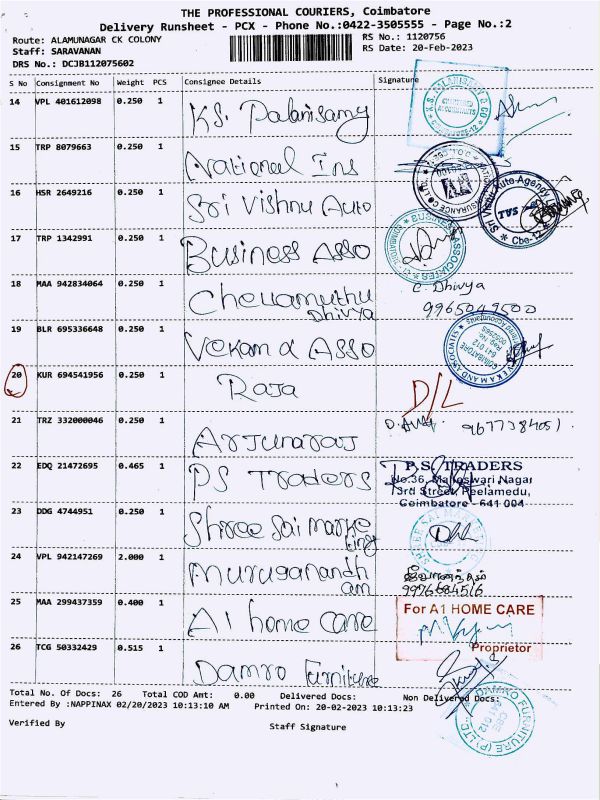 THE PROFESSIONAL COURIERS, Coimbatore
Delivery Runsheet - PCX - Phone No.:0422-3505555 - Page No.:2
Route: ALAMUNAGAR CK COLONY
RS No.: 1120756
Staff: SARAVANAN
RS Date: 20-Feb-2023
DRS No.: DCJB112075602
S No Consignment No Weight PCS Consignee Details Signature
14 VPL 401612098 0.250 1 K.S. Palanisamy
15 TRP 8079663 0.250 1 National Ins
16 HSR 2649216 0.250 1 Sri Vishnu Auto
17 TRP 1342991 0.250 1 Business Asso
18 MAA 942834064 0.250 1 Chellamuthu
Dhivya
C. Dhivya
9965049500
19 BLR 695336648 0.250 1 Vekam & Asso
20 KUR 694541956 0.250 1 Raja D/L
21 TRZ 332000046 0.250 1 Arjunaraj
9677384051
22 EDQ 21472695 0.465 1 PS Traders
P.S. TRADERS
No.36, Maheswari Nagar
3rd Street, Peelamedu,
Coimbatore - 641 004
23 DDG 4744951 0.250 1 Shree Sai Marke
ting
24 VPL 942147269 2.000 1 Muruganandh
am
9976684516
25 MAA 299437359 0.400 1 A1 home care
For A1 HOME CARE
Proprietor
26 TCG 50332429 0.515 1 Damro Furniture
DAMRO FURNITURE (P) LTD.
CBE
641 012
Total No. Of Docs: 26 Total COD Amt: 0.00 Delivered Docs: Non Delivered Docs:
Entered By :NAPPINAX 02/20/2023 10:13:10 AM Printed On: 20-02-2023 10:13:23
Verified By Staff Signature